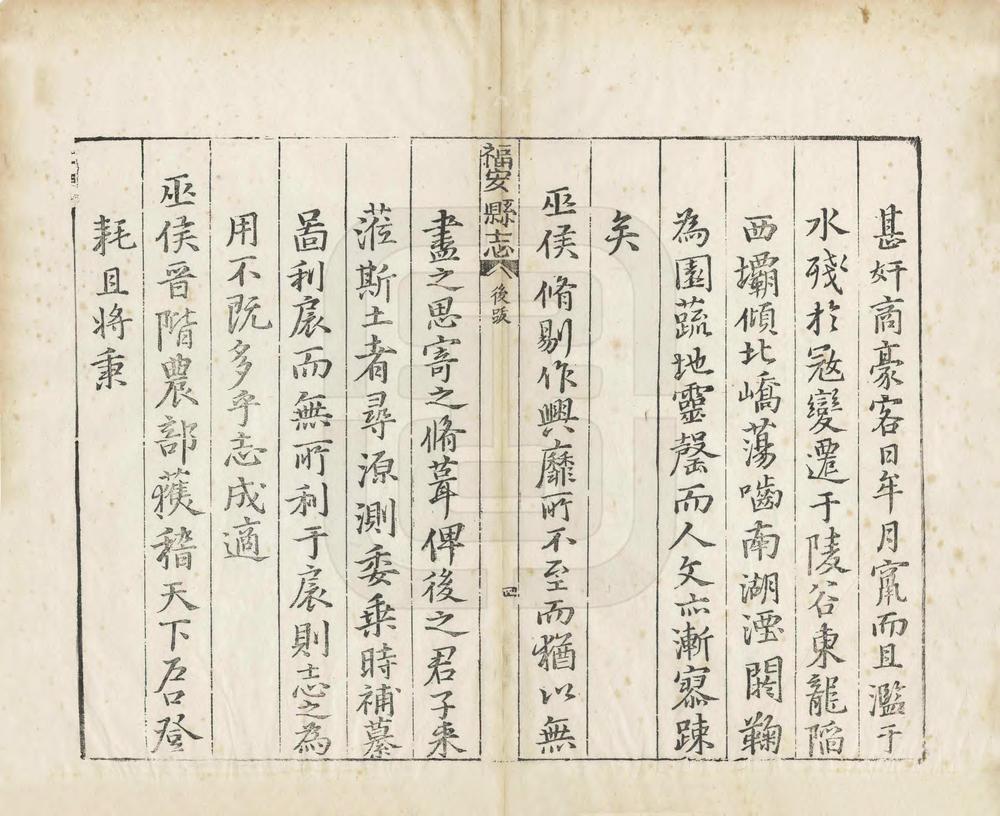 甚奸商豪客日年月甯而且濫于
水殘於冦變遷于陵谷東龍陷
西壩傾北嶠蕩嚙南湖湮閼鞠
為園蔬地靈罄而人文亦漸寥踈
矣
巫侯脩剔作興靡所不至而猶以無
福安縣志
後跋
四
盡之思寄之脩葺俾後之君子来
蒞斯土者尋源測委乗時補綦
啚利扆而無所利于扆則志之為
用不既多乎志成適
巫侯晋階農部蒦稽天下戶口登
耗且将秉